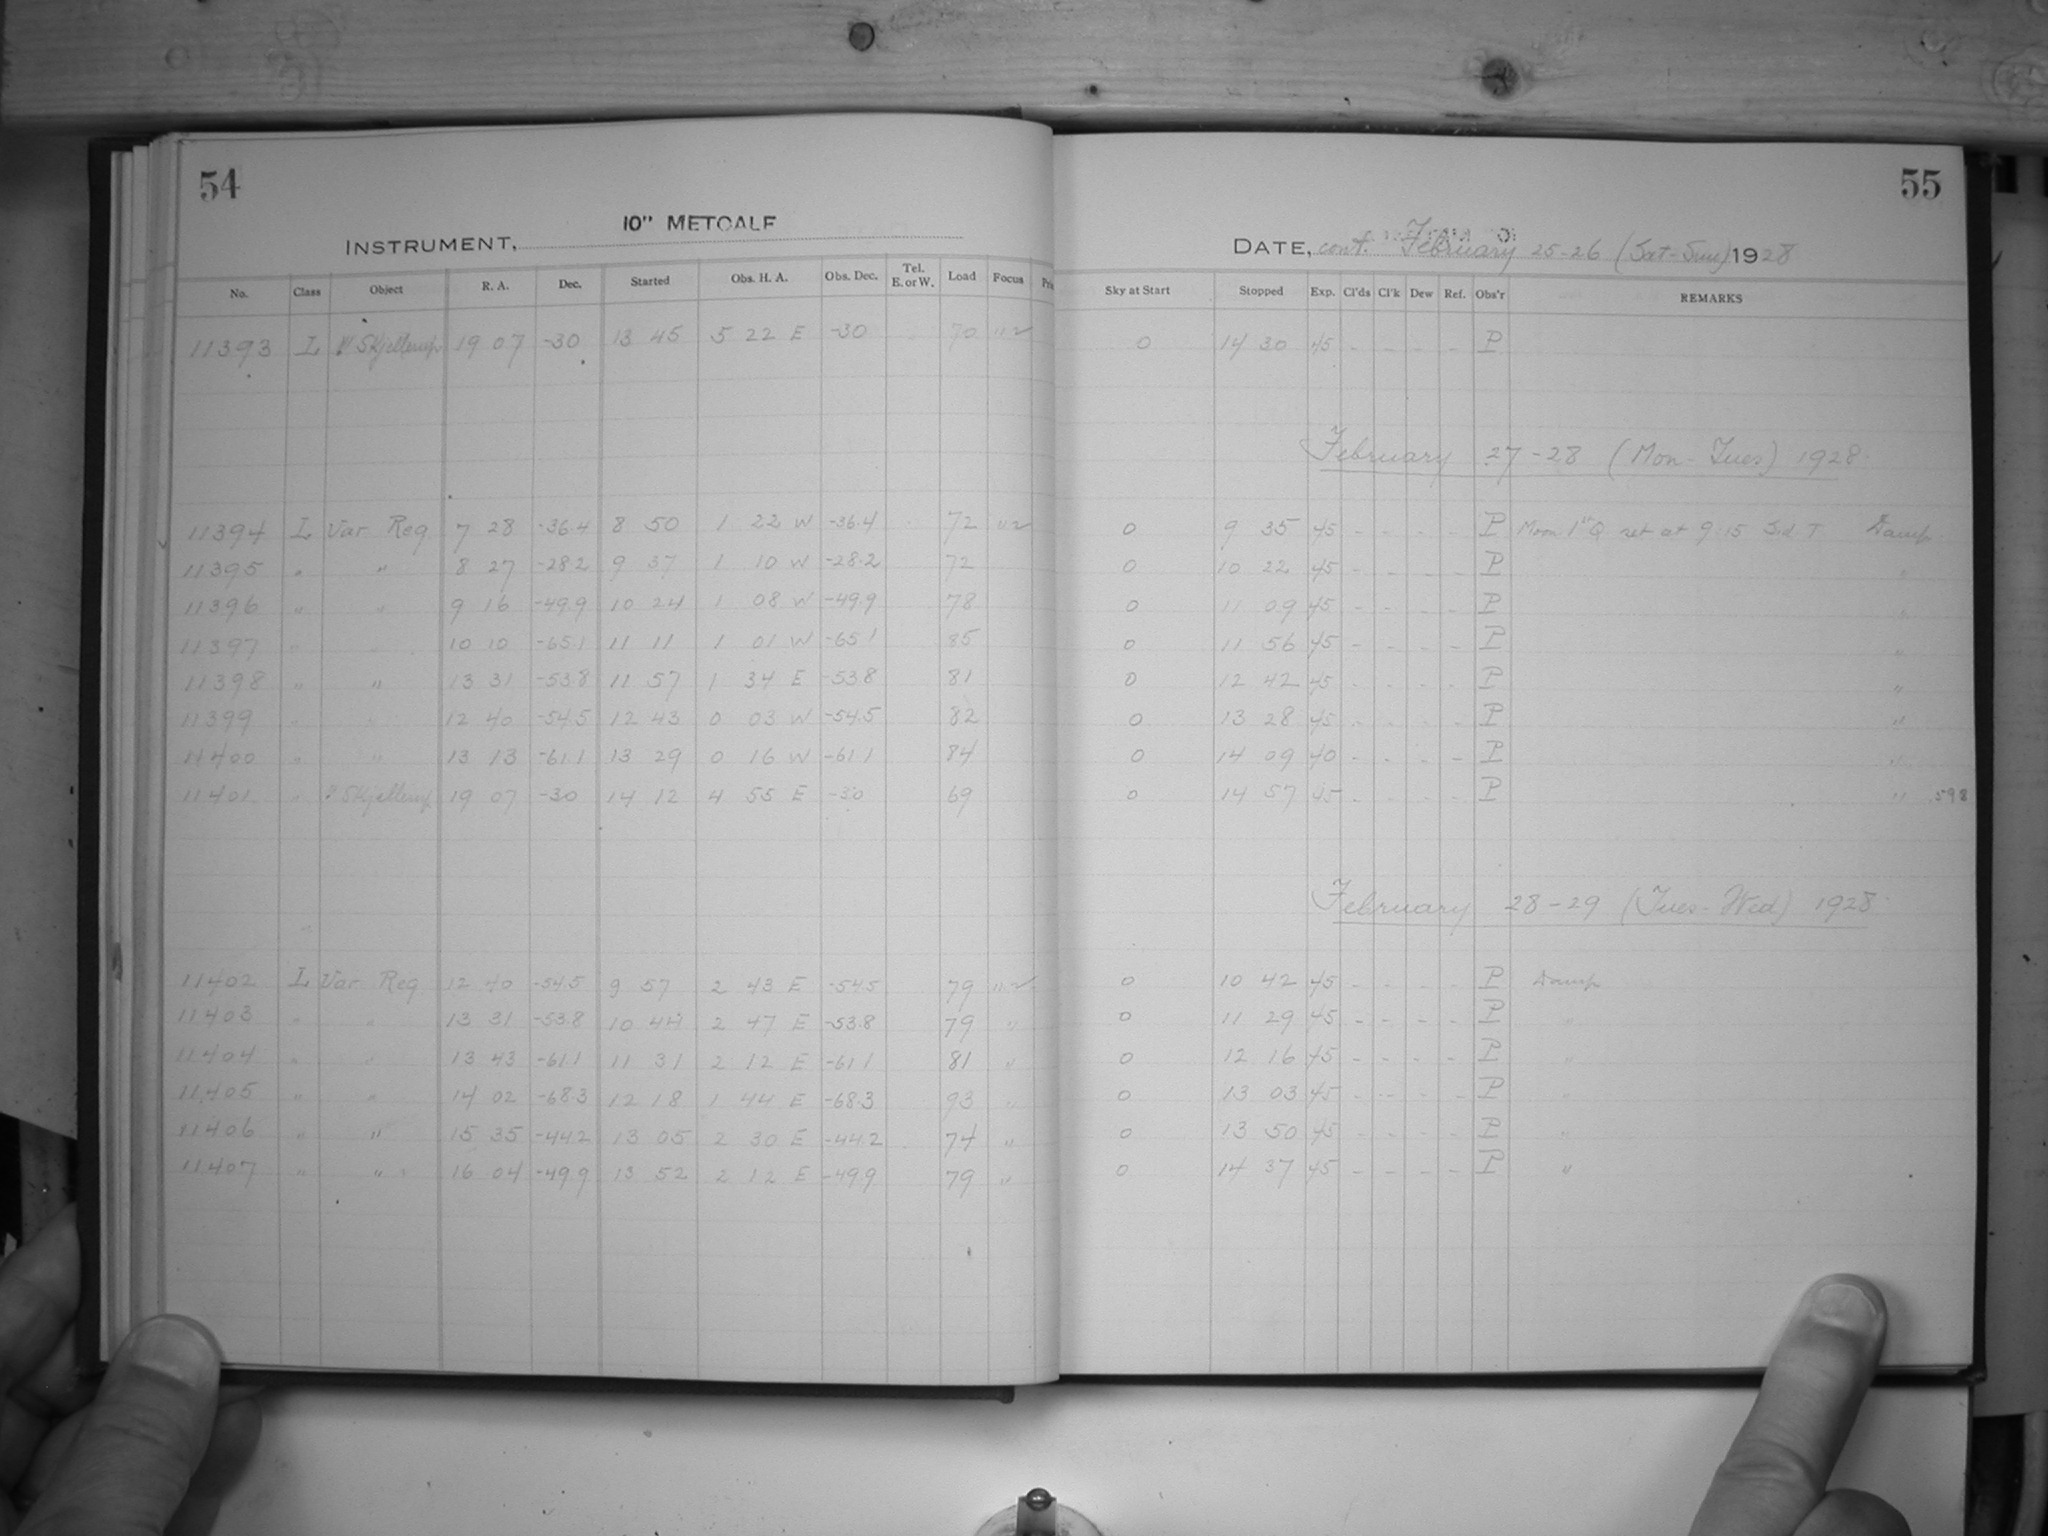 54
INSTRUMENT, 10" METCALF
No. Class Object R. A. Dec. Started Obs. H. A. Obs. Dec. Tel. E. or W. Load Focus
11393 L Skjellerup 19 07 -30 13 45 5 22 E -30 70
11394 L Var Reg 7 28 -36.4 8 50 1 22 W -36.4 72
11395 " " 8 27 -28.2 9 37 1 10 W -28.2 72
11396 " " 9 16 -49.9 10 24 1 08 W -49.9 78
11397 " " 10 10 -65.1 11 11 1 01 W -65.1 85
11398 " " 13 31 -53.8 11 57 1 34 E -53.8 81
11399 " " 12 40 -54.5 12 43 0 03 W -54.5 82
11400 " " 13 13 -61.1 13 29 0 16 W -61.1 84
11401 " Skjellerup 19 07 -30 14 12 4 55 E -30 69
11402 L Var Reg 12 40 -54.5 9 57 2 43 E -54.5 79
11403 " " 13 31 -53.8 10 44 2 47 E -53.8 79 "
11404 " " 13 43 -61.1 11 31 2 12 E -61.1 81 "
11405 " " 14 02 -68.3 12 18 1 44 E -68.3 93 "
11406 " " 15 35 -44.2 13 05 2 30 E -44.2 74 "
11407 " " 16 04 -49.9 13 52 2 12 E -49.9 79 "
55
DATE, cont. February 25-26 (Sat-Sun) 1928
Sky at Start Stopped Exp. Cl'ds Cl'k Dew Ref. Obs'r REMARKS
0 14 30 45 - - - - P
February 27-28 (Mon-Tues) 1928
0 9 35 45 - - - - P Moon 1st Q set at 9 15 Sid T Damp
0 10 22 45 - - - - P "
0 11 09 45 - - - - P "
0 11 56 45 - - - - P "
0 12 42 45 - - - - P "
0 13 28 45 - - - - P "
0 14 09 40 - - - - P "
0 14 57 45 - - - - P " .598
February 28-29 (Tues-Wed) 1928
0 10 42 45 - - - - P Damp
0 11 29 45 - - - - P "
0 12 16 45 - - - - P "
0 13 03 45 - - - - P "
0 13 50 45 - - - - P "
0 14 37 45 - - - - P "